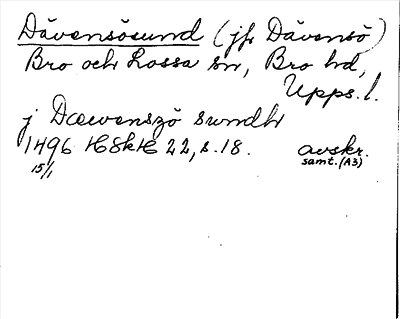 Dävensösund (jfr Dävensö)
Bro och Lossa sn, Bro hd,
Upps. l.
j Dæwenszö swndh
1496 HSkH 22, s. 18. avskr.
15/1 samt. (A3)